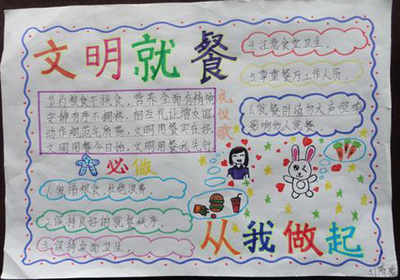 文明就餐
节约粮食不挑食，营养全面有精神
安静有序不拥挤，相互礼让增友谊
动作规范有所为，文明用餐实在好
文明用餐今日始，文明用餐我先行
礼仪歌
必做
1.爱惜粮食，杜绝浪费。
2.保持良好的就餐秩序。
3.保持桌面卫生。
4.注意食堂卫生。
5.尊重餐厅工作人员。
6.就餐时请勿大声喧哗
影响他人就餐。
从我做起